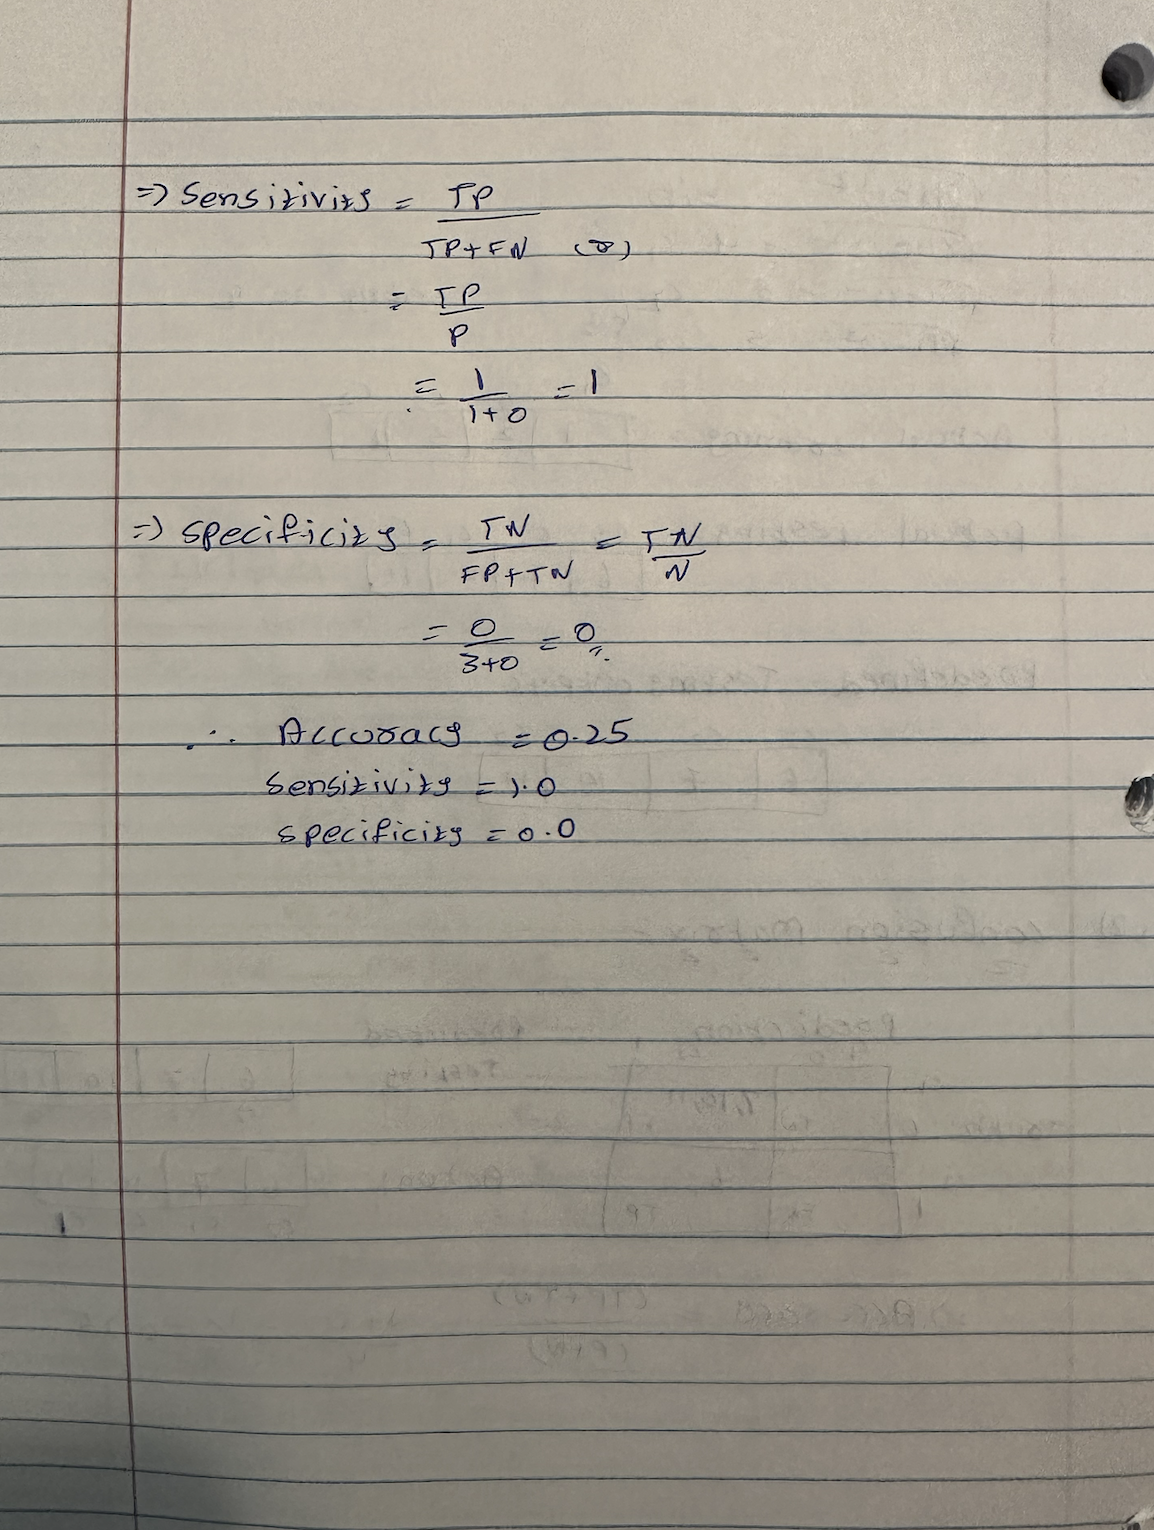 => Sensitivity = TP
TP+FN (or)
= TP
P
= 1 = 1
1+0
=> Specificity = TN = TN
FP+TN N
= 0 = 0
3+0
∴ Accuracy = 0.25
Sensitivity = 1.0
Specificity = 0.0